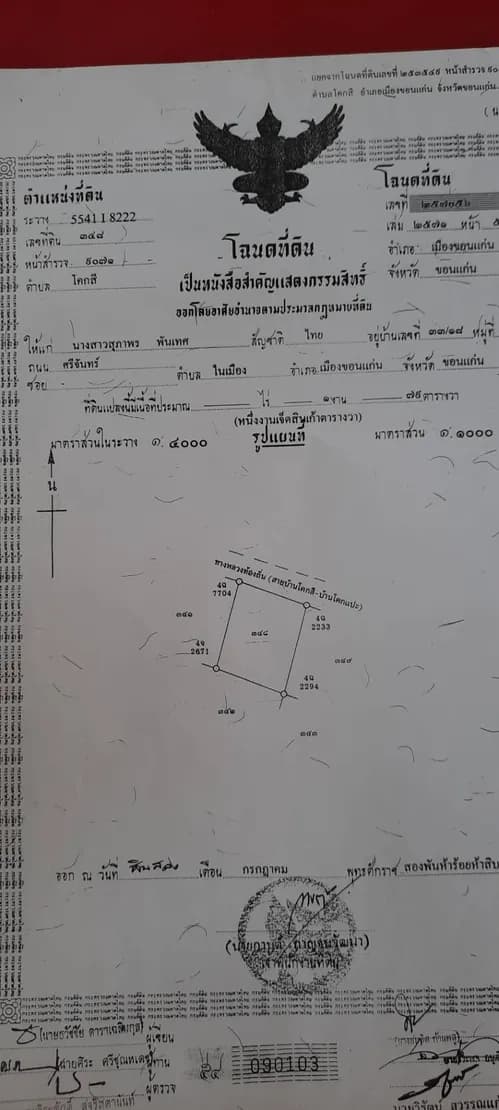 แยกจากโฉนดที่ดินเลขที่ ๒๕๓๕๔๙ หน้าสำรวจ ๙๐
ตำบลโคกสี อำเภอเมืองขอนแก่น จังหวัดขอนแก่น
ตำแหน่งที่ดิน
ระวาง 5541 I 8222
เลขที่ดิน ๓๔๘
หน้าสำรวจ ๙๐๗๑
ตำบล โคกสี
โฉนดที่ดิน
เลขที่ ๒๕๗๐๕๖
เล่ม ๒๕๗๑ หน้า
อำเภอ เมืองขอนแก่น
จังหวัด ขอนแก่น
โฉนดที่ดิน
เป็นหนังสือสำคัญแสดงกรรมสิทธิ์
ออกโดยอาศัยอำนาจตามประมวลกฎหมายที่ดิน
ให้แก่ นางสาวสุภาพร พันเทศ สัญชาติ ไทย อยู่บ้านเลขที่ ๓๓/๑๘ หมู่ที่
ถนน ศรีจันทร์ ตำบล ในเมือง อำเภอ เมืองขอนแก่น จังหวัด ขอนแก่น
ซอย -
ที่ดินแปลงนี้มีเนื้อที่ประมาณ ไร่ ๑ งาน ๗๙ ตารางวา
(หนึ่งงานเจ็ดสิบเก้าตารางวา)
มาตราส่วนในระวาง ๑: ๔๐๐๐ รูปแผนที่ มาตราส่วน ๑: ๑๐๐๐
น
ทางหลวงท้องถิ่น (สายบ้านโคกสี-บ้านโคกแปะ)
4ฉ
7704
4ฉ
2233
๓๔๑
๓๔๘
4ฉ
2671
๓๔๙
4ฉ
2294
๓๔๒
๓๔๓
ออก ณ วันที่ สิบสอง เดือน กรกฎาคม พุทธศักราช สองพันห้าร้อยห้าสิบ
เจ้าพนักงานที่ดิน
ผู้เขียน
ผู้ทาน
ผู้ตรวจ
090103